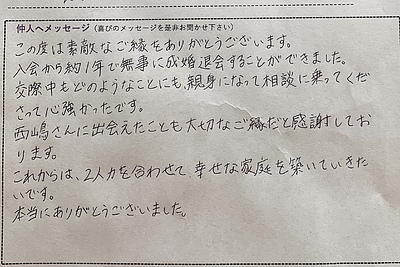 仲人へメッセージ（喜びのメッセージを是非お聞かせ下さい）
この度は素敵なご縁をありがとうございます。
入会から約1年で無事に成婚退会することができました。
交際中もどのようなことにも、親身になって相談に乗ってくだ
さって心強かったです。
西嶋さんに出会えたことも大切なご縁だと感謝してお
ります。
これからは、2人力を合わせて、幸せな家庭を築いていきた
いです。
本当にありがとうございました。